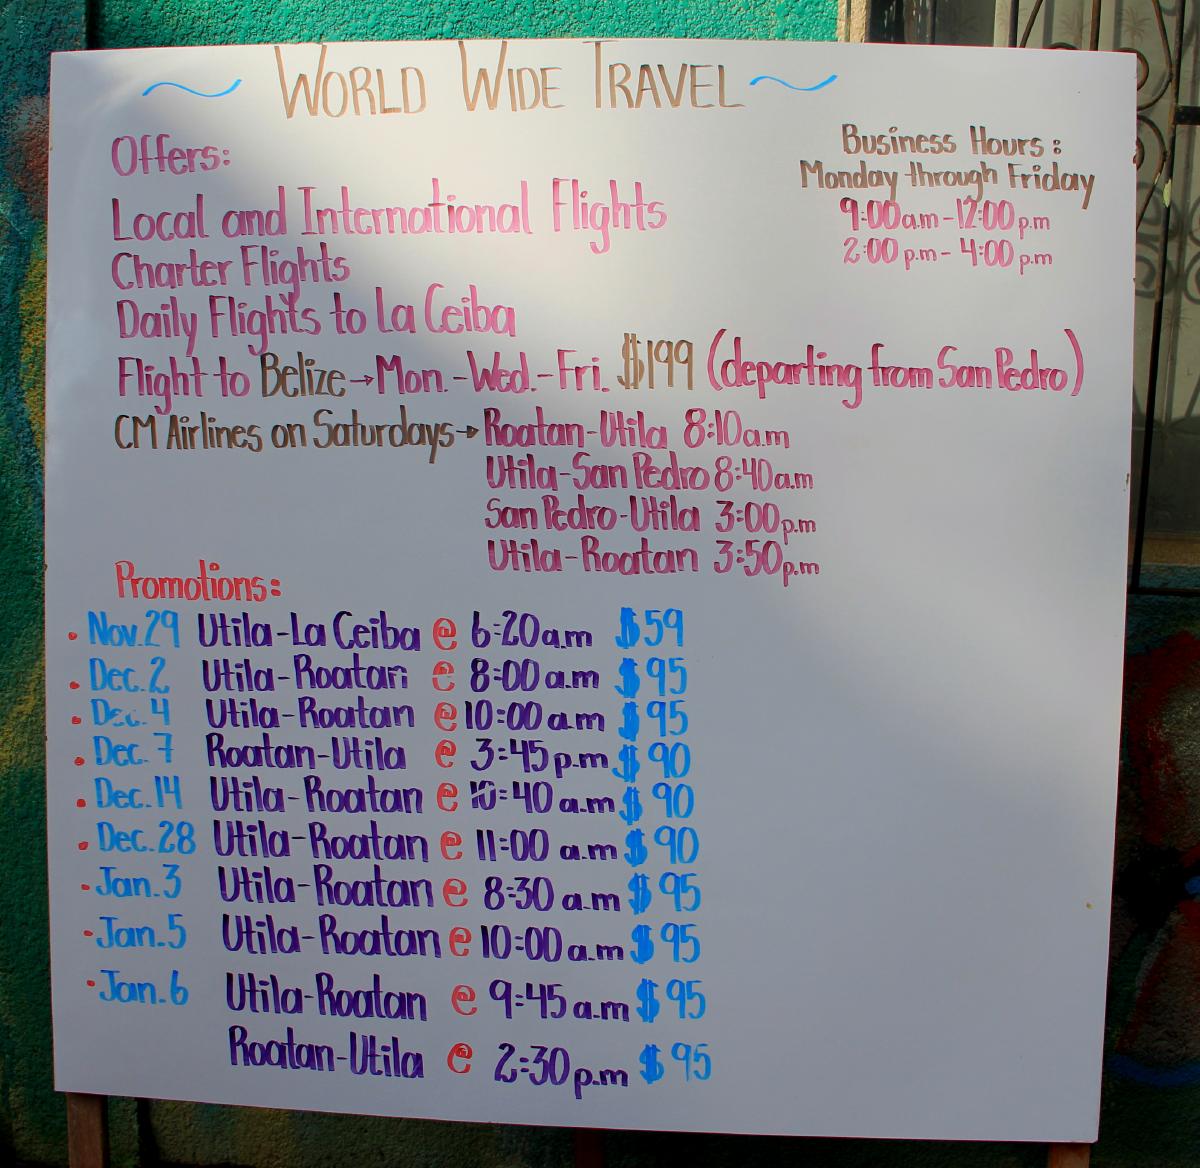 WORLD WIDE TRAVEL
Offers:
Business Hours:
Monday through Friday
9:00 a.m-12:00 p.m
2:00 p.m-4:00 p.m
Local and International Flights
Charter Flights
Daily Flights to La Ceiba
Flight to Belize→Mon.-Wed.-Fri. $199 (departing from San Pedro)
CM Airlines on Saturdays→Roatan-Utila 8:10a.m
Utila-San Pedro 8:40a.m
San Pedro-Utila 3:00p.m
Utila-Roatan 3:50p.m
Promotions:
• Nov.29 Utila-La Ceiba @ 6:20a.m $59
• Dec.2 Utila-Roatan @ 8:00a.m $95
• Dec.4 Utila-Roatan @ 10:00a.m $95
• Dec.7 Roatan-Utila @ 3:45p.m $90
• Dec.14 Utila-Roatan @ 10:40a.m $90
• Dec.28 Utila-Roatan @ 11:00 a.m $90
• Jan.3 Utila-Roatan @ 8:30 a.m $95
• Jan.5 Utila-Roatan @ 10:00a.m $95
• Jan.6 Utila-Roatan @ 9:45a.m $95
Roatan-Utila @ 2:30p.m $95